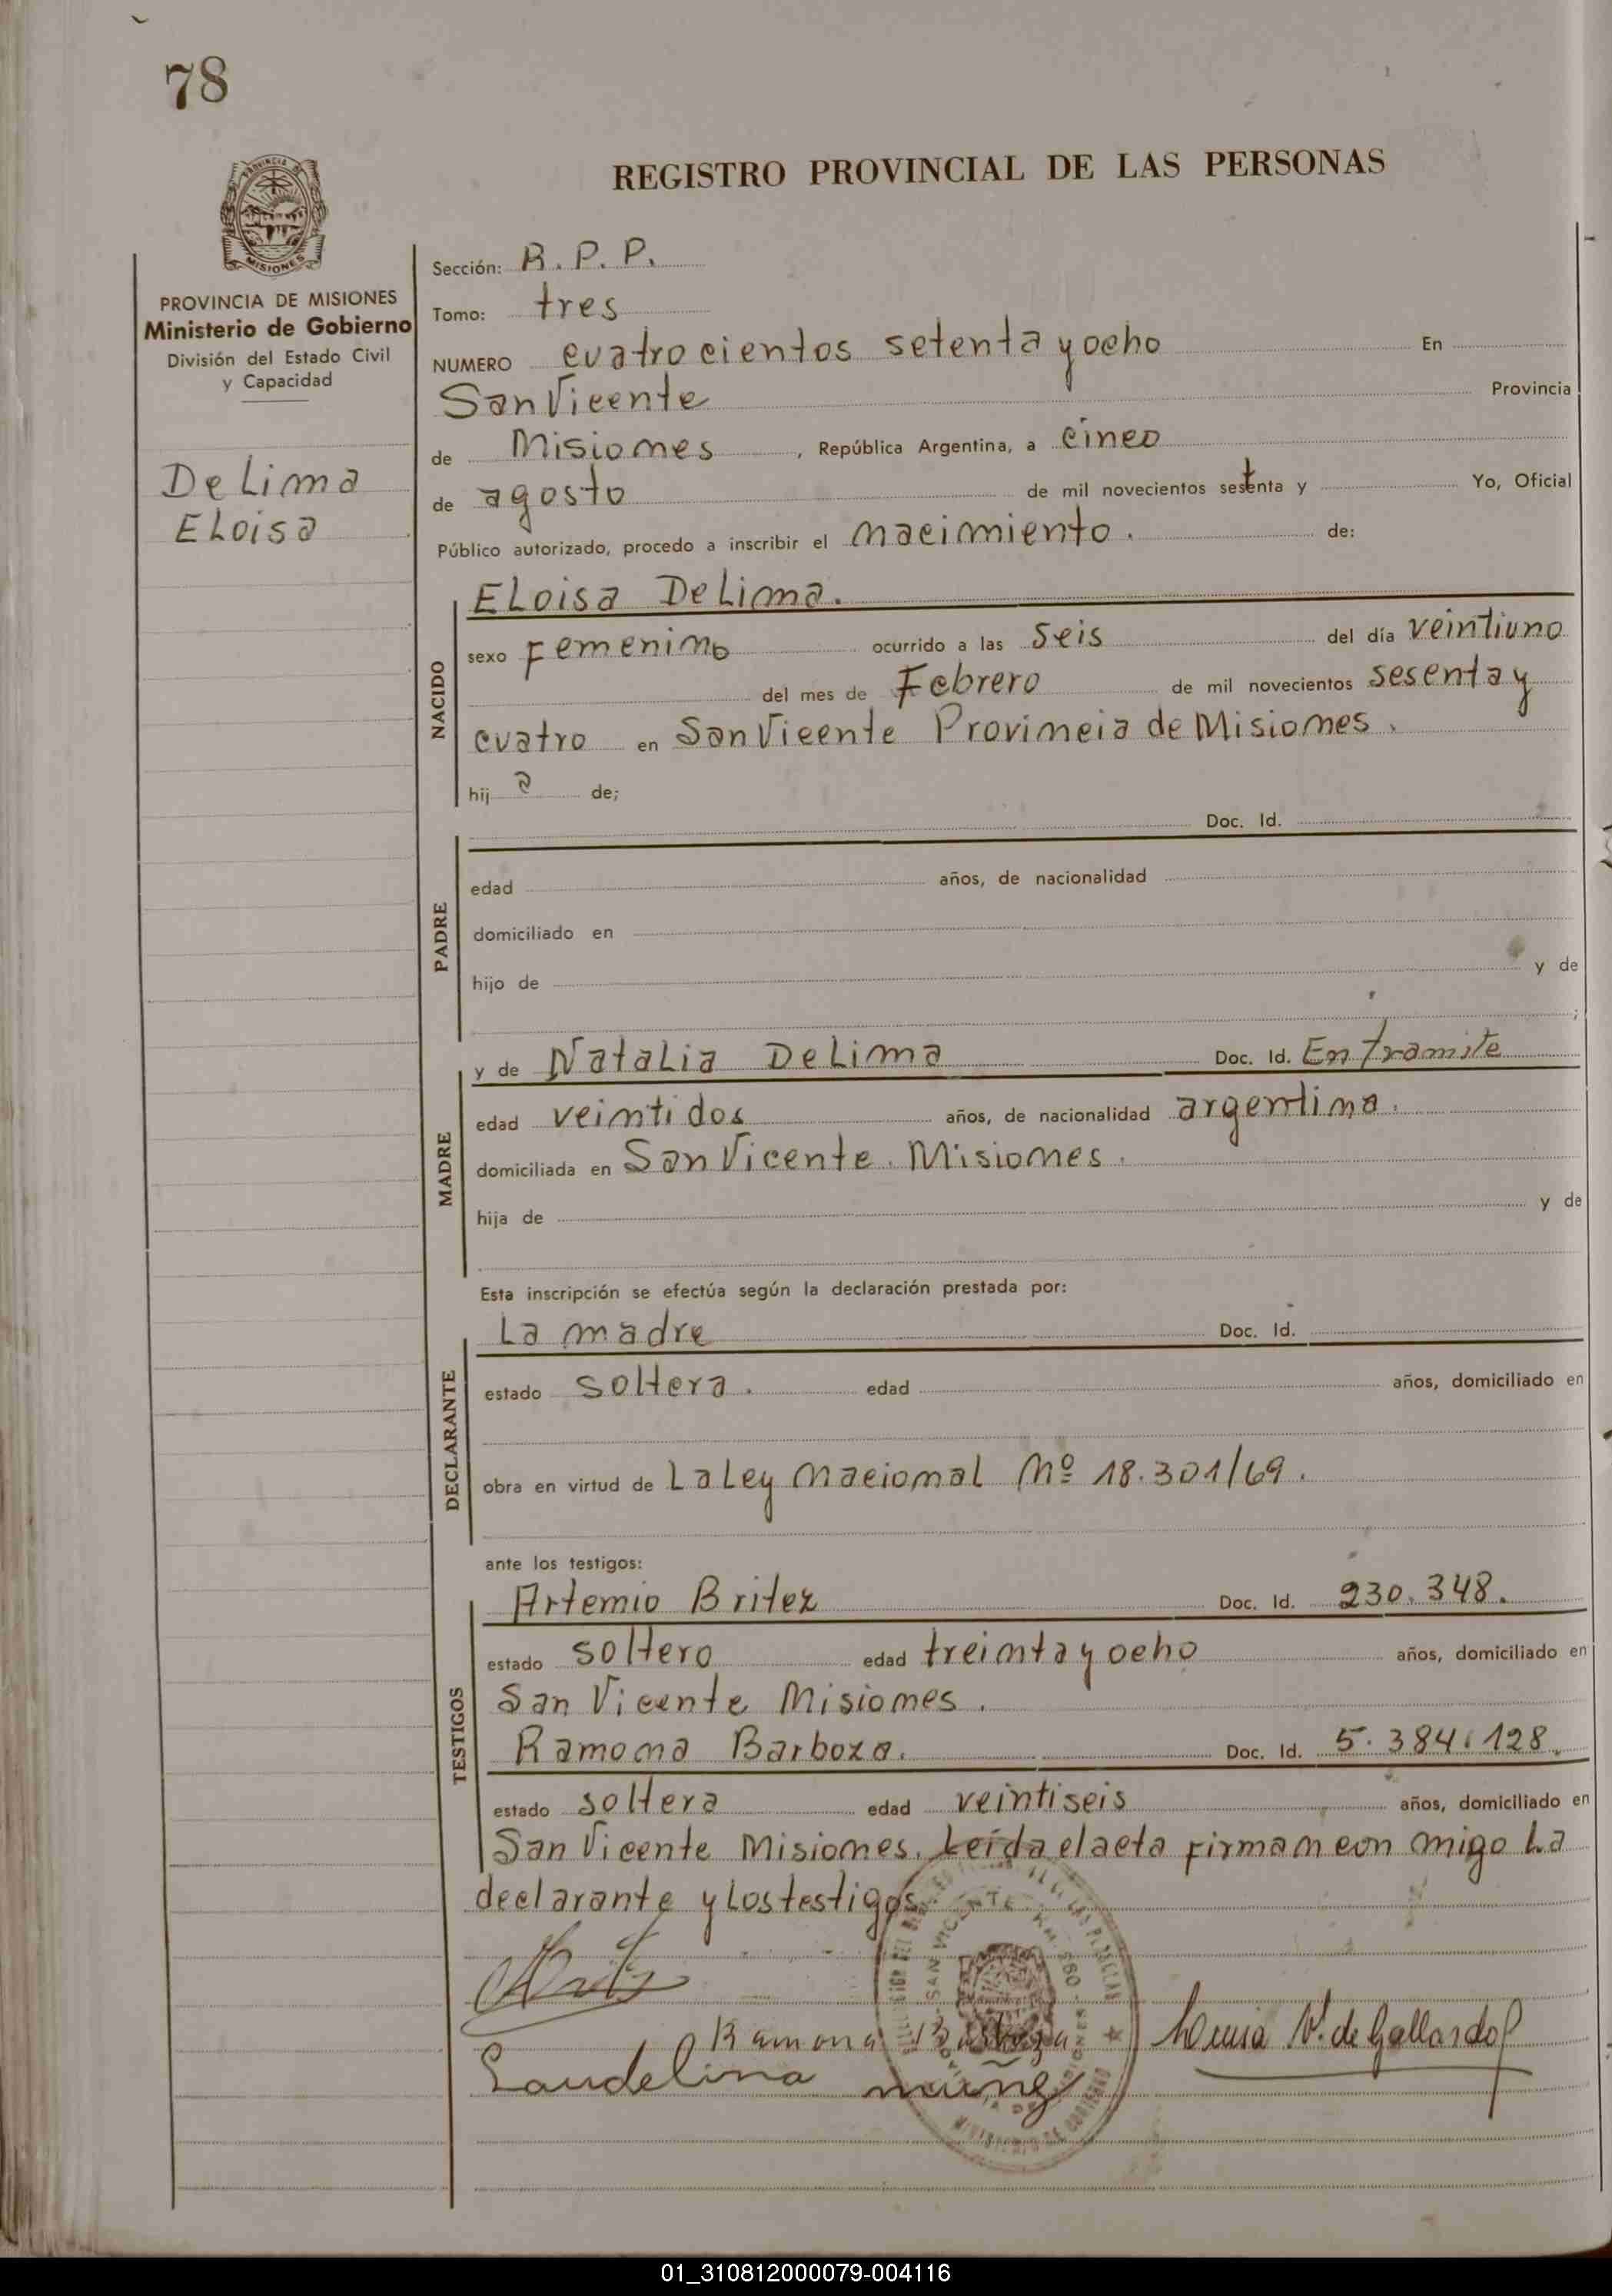 78
REGISTRO PROVINCIAL DE LAS PERSONAS
PROVINCIA DE MISIONES
Ministerio de Gobierno
División del Estado Civil
y Capacidad
De Lima
ELoisa
Sección: R. P. P.
Tomo: tres
NUMERO cuatrocientos setenta y ocho En
San Vicente Provincia
de Misiones, República Argentina, a cinco
de agosto de mil novecientos setenta y Yo, Oficial
Público autorizado, procedo a inscribir el nacimiento. de:
NACIDO
ELoisa De Lima.
sexo Femenino ocurrido a las seis del día veintiuno
del mes de Febrero de mil novecientos sesenta y
cuatro en San Vicente Provincia de Misiones.
hij a de;
PADRE
Doc. Id.
edad años, de nacionalidad
domiciliado en
hijo de y de
;
MADRE
y de Natalia De Lima Doc. Id. En tramite
edad veintidos años, de nacionalidad argentina.
domiciliada en San Vicente. Misiones.
hija de y de
Esta inscripción se efectúa según la declaración prestada por:
DECLARANTE
La madre Doc. Id.
estado soltera. edad años, domiciliado en
obra en virtud de La Ley Nacional Nº 18.301/69.
ante los testigos:
TESTIGOS
Artemio Britez Doc. Id. 230.348.
estado soltero edad treinta y ocho años, domiciliado en
San Vicente Misiones.
Ramona Barboza. Doc. Id. 5.384.128.
estado soltera edad veintiseis años, domiciliado en
San Vicente Misiones. Leída el acta firman con migo La
declarante y Los testigos.
SAN VICENTE
Ramona Barboza
V. de Gallardo
Laudelina
01_310812000079-004116